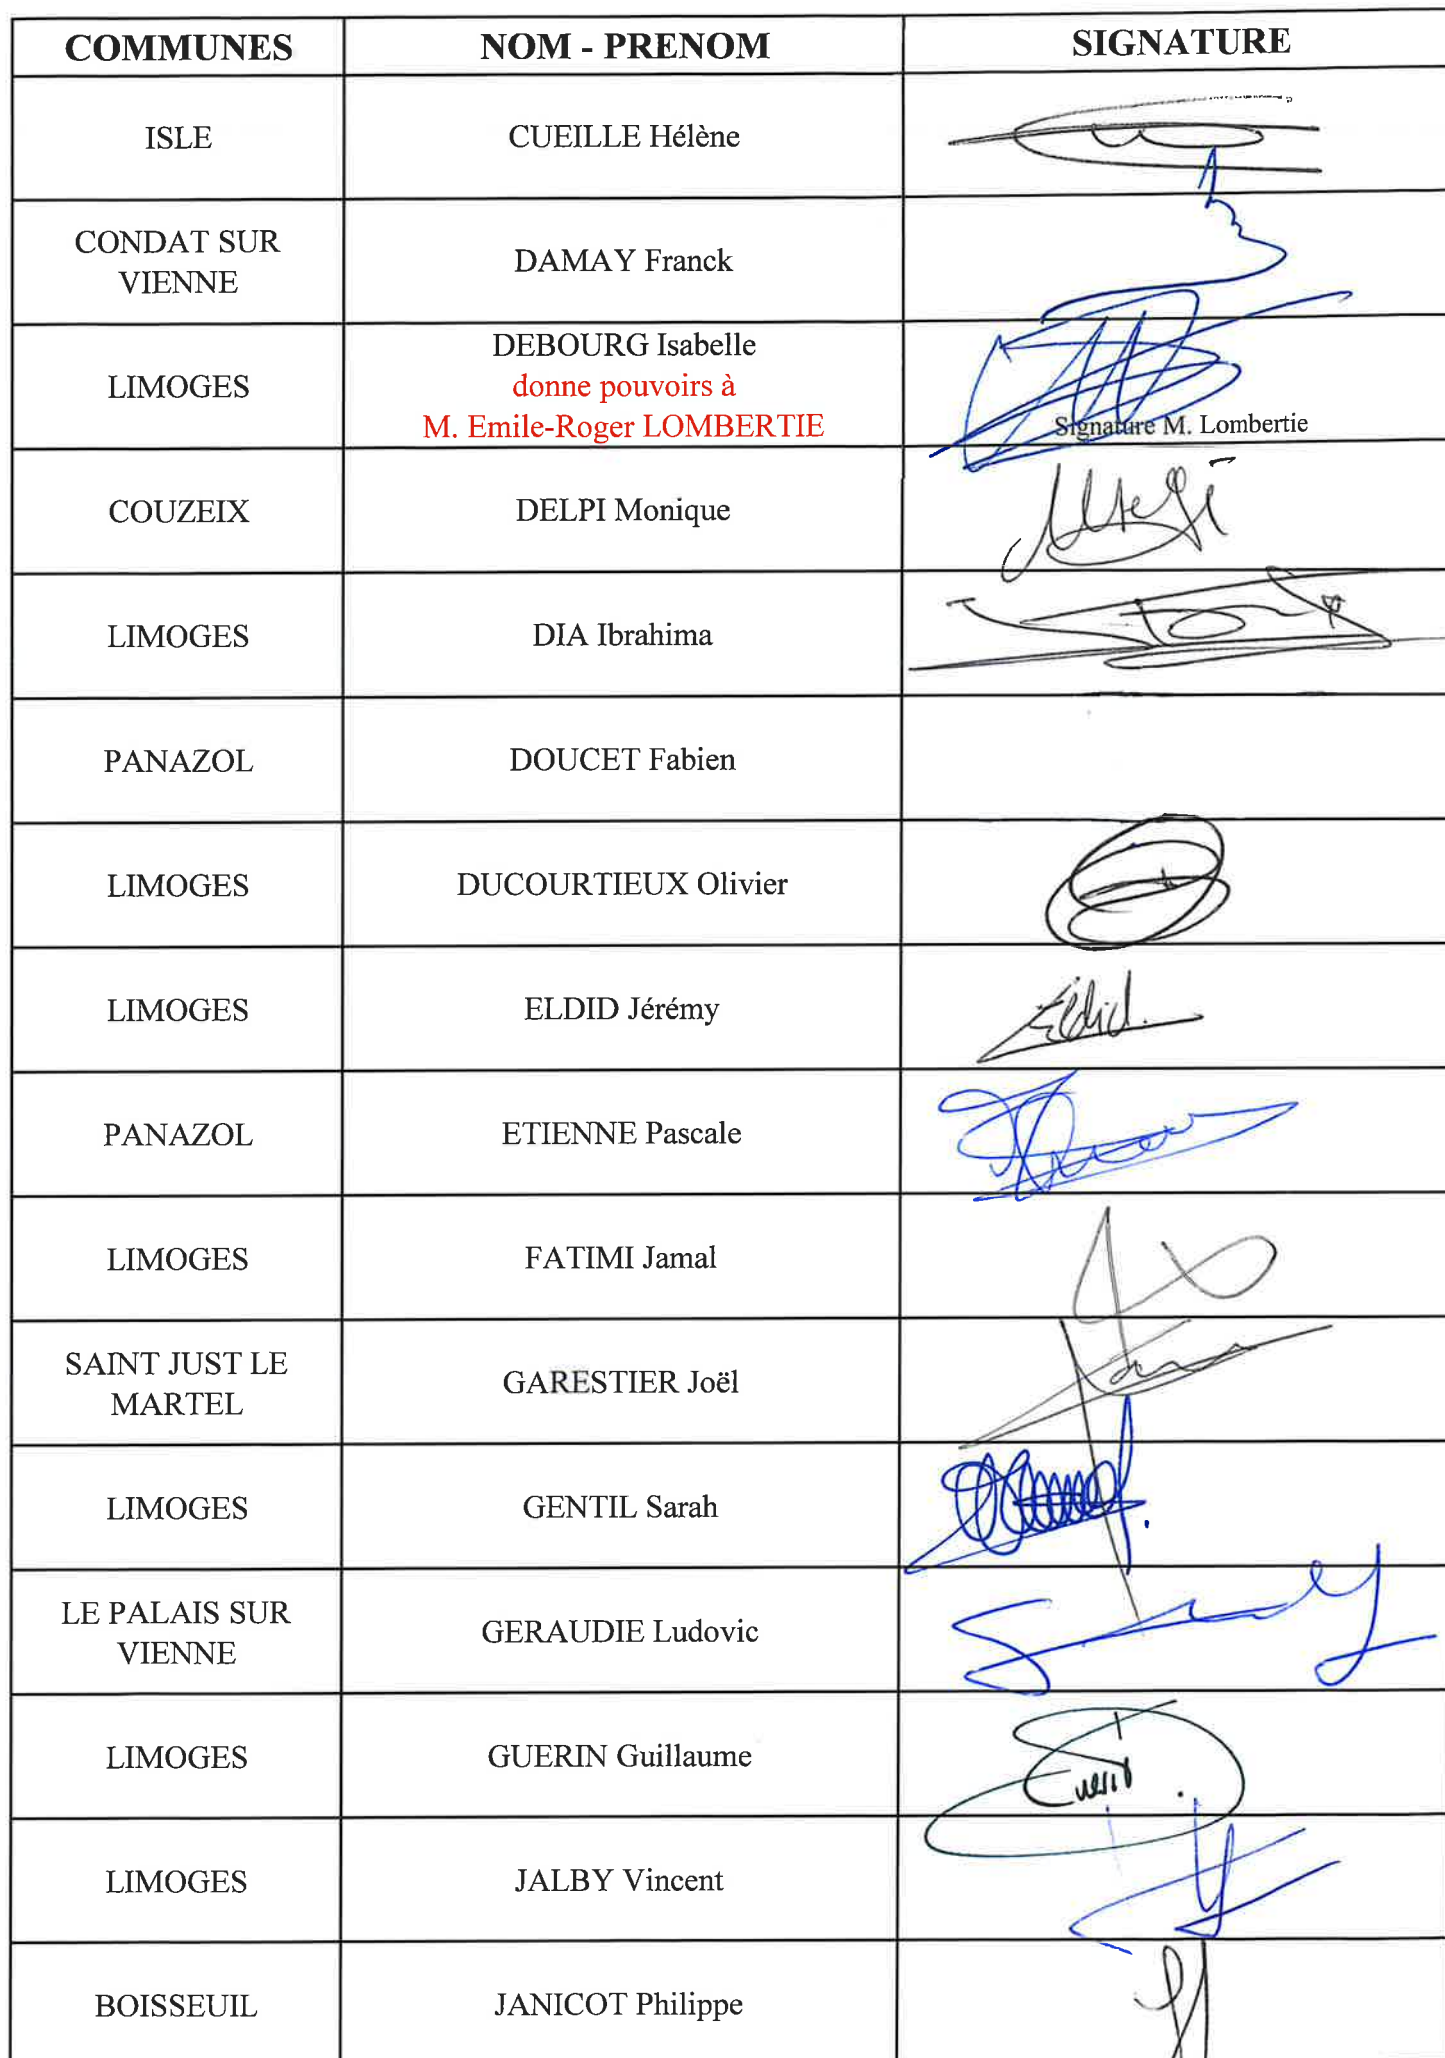 COMMUNES NOM - PRENOM SIGNATURE
ISLE CUEILLE Hélène
CONDAT SUR
VIENNE
DAMAY Franck
LIMOGES
DEBOURG Isabelle
donne pouvoirs à
M. Emile-Roger LOMBERTIE
Signature M. Lombertie
COUZEIX DELPI Monique
LIMOGES DIA Ibrahima
PANAZOL DOUCET Fabien
LIMOGES DUCOURTIEUX Olivier
LIMOGES ELDID Jérémy Eldid
PANAZOL ETIENNE Pascale
LIMOGES FATIMI Jamal
SAINT JUST LE
MARTEL
GARESTIER Joël
LIMOGES GENTIL Sarah
LE PALAIS SUR
VIENNE
GERAUDIE Ludovic
LIMOGES GUERIN Guillaume
LIMOGES JALBY Vincent
BOISSEUIL JANICOT Philippe